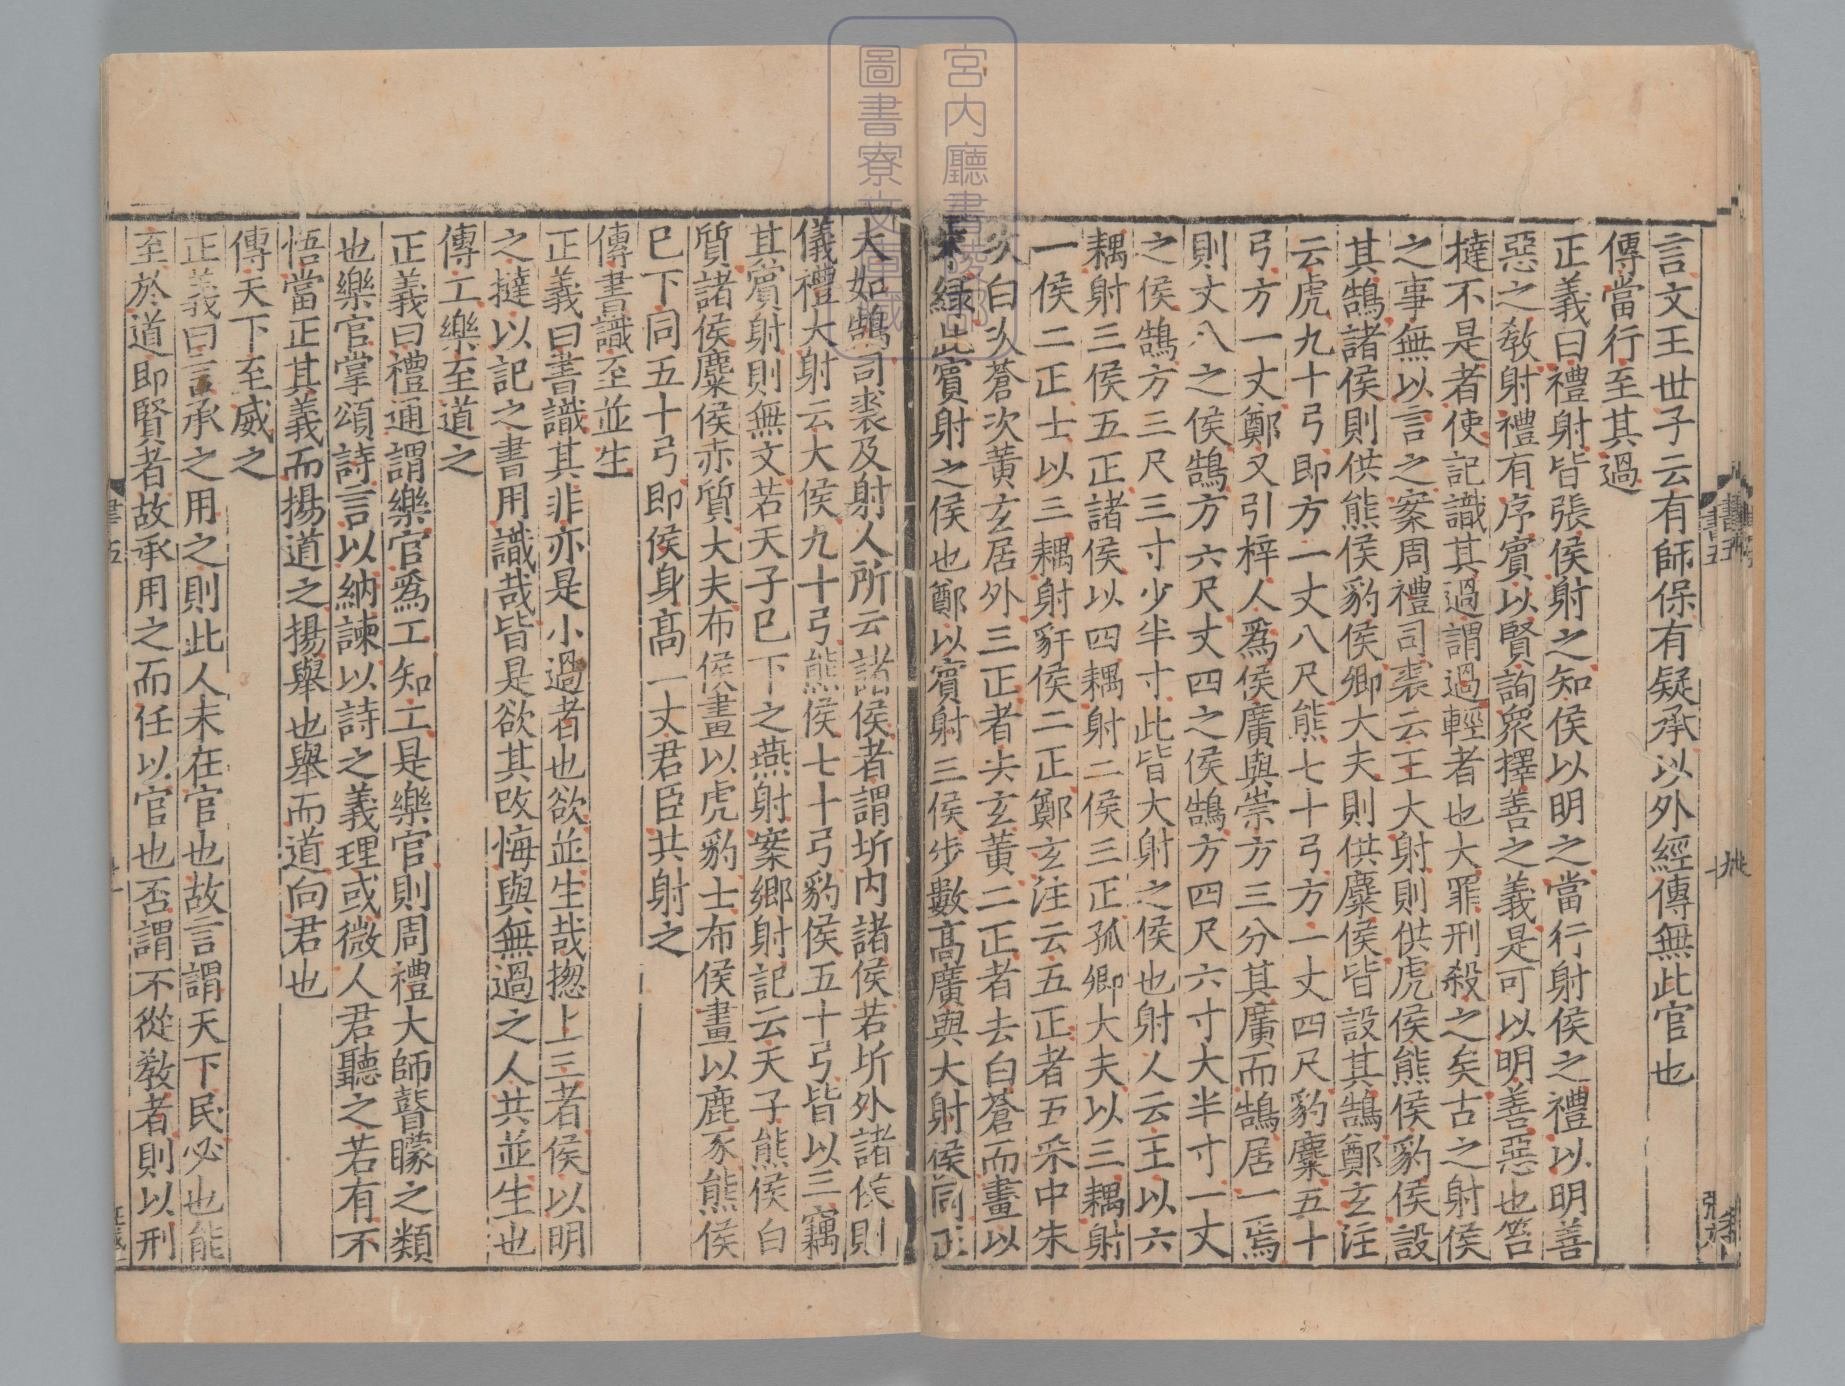 言文王世子云有師保有疑承以外經傳無此官也
傳當行至其過
正義曰禮射皆張侯射之知侯以明之當行射侯之禮以明善
惡之教射禮有序賓以賢詢衆擇善之義是可以明善惡也笞
撻不是者使記識其過謂過輕者也大罪刑殺之矣古之射侯
之事無以言之案周禮司裘云王大射則供虎侯熊侯豹侯設
其鵠諸侯則供熊侯豹侯卿大夫則供麋侯皆設其鵠鄭玄注
云虎九十弓即方一丈八尺熊七十弓方一丈四尺豹麋五十
弓方一丈鄭又引梓人爲侯廣與崇方三分其廣而鵠居一焉
則丈八之侯鵠方六尺丈四之侯鵠方四尺六寸大半寸一丈
之侯鵠方三尺三寸少半寸此皆大射之侯也射人云王以六
耦射三侯五正諸侯以四耦射二侯三正孤卿大夫以三耦射
一侯二正士以三耦射豻侯二正鄭玄注云五正者五采中朱
次白次蒼次黃玄居外三正者去玄黃二正者去白蒼而畫以
朱綠此賓射之侯也鄭以賓射三侯步數高廣與大射侯同正
大如鵠司裘及射人所云諸侯者謂圻內諸侯若圻外諸侯則
儀禮大射云大侯九十弓熊侯七十弓豹侯五十弓皆以三耦
其賓射則無文若天子已下之燕射案鄉射記云天子熊侯白
質諸侯麋侯赤質大夫布侯畫以虎豹士布侯畫以鹿豕熊侯
已下同五十弓即侯身高一丈君臣共射之
傳書識至並生
正義曰書識其非亦是小過者也欲並生哉揔上三者侯以明
之撻以記之書用識哉皆是欲其改悔與無過之人共並生也
傳工樂至道之
正義曰禮通謂樂官爲工知工是樂官則周禮大師瞽矇之類
也樂官掌頌詩言以納諫以詩之義理或微人君聽之若有不
悟當正其義而揚道之揚舉也舉而道向君也
傳天下至威之
正義曰言承之用之則此人未在官也故言謂天下民必也能
至於道即賢者故承用之而任以官也否謂不從教者則以刑
書五
宮內廳書陵部
圖書寮文庫藏